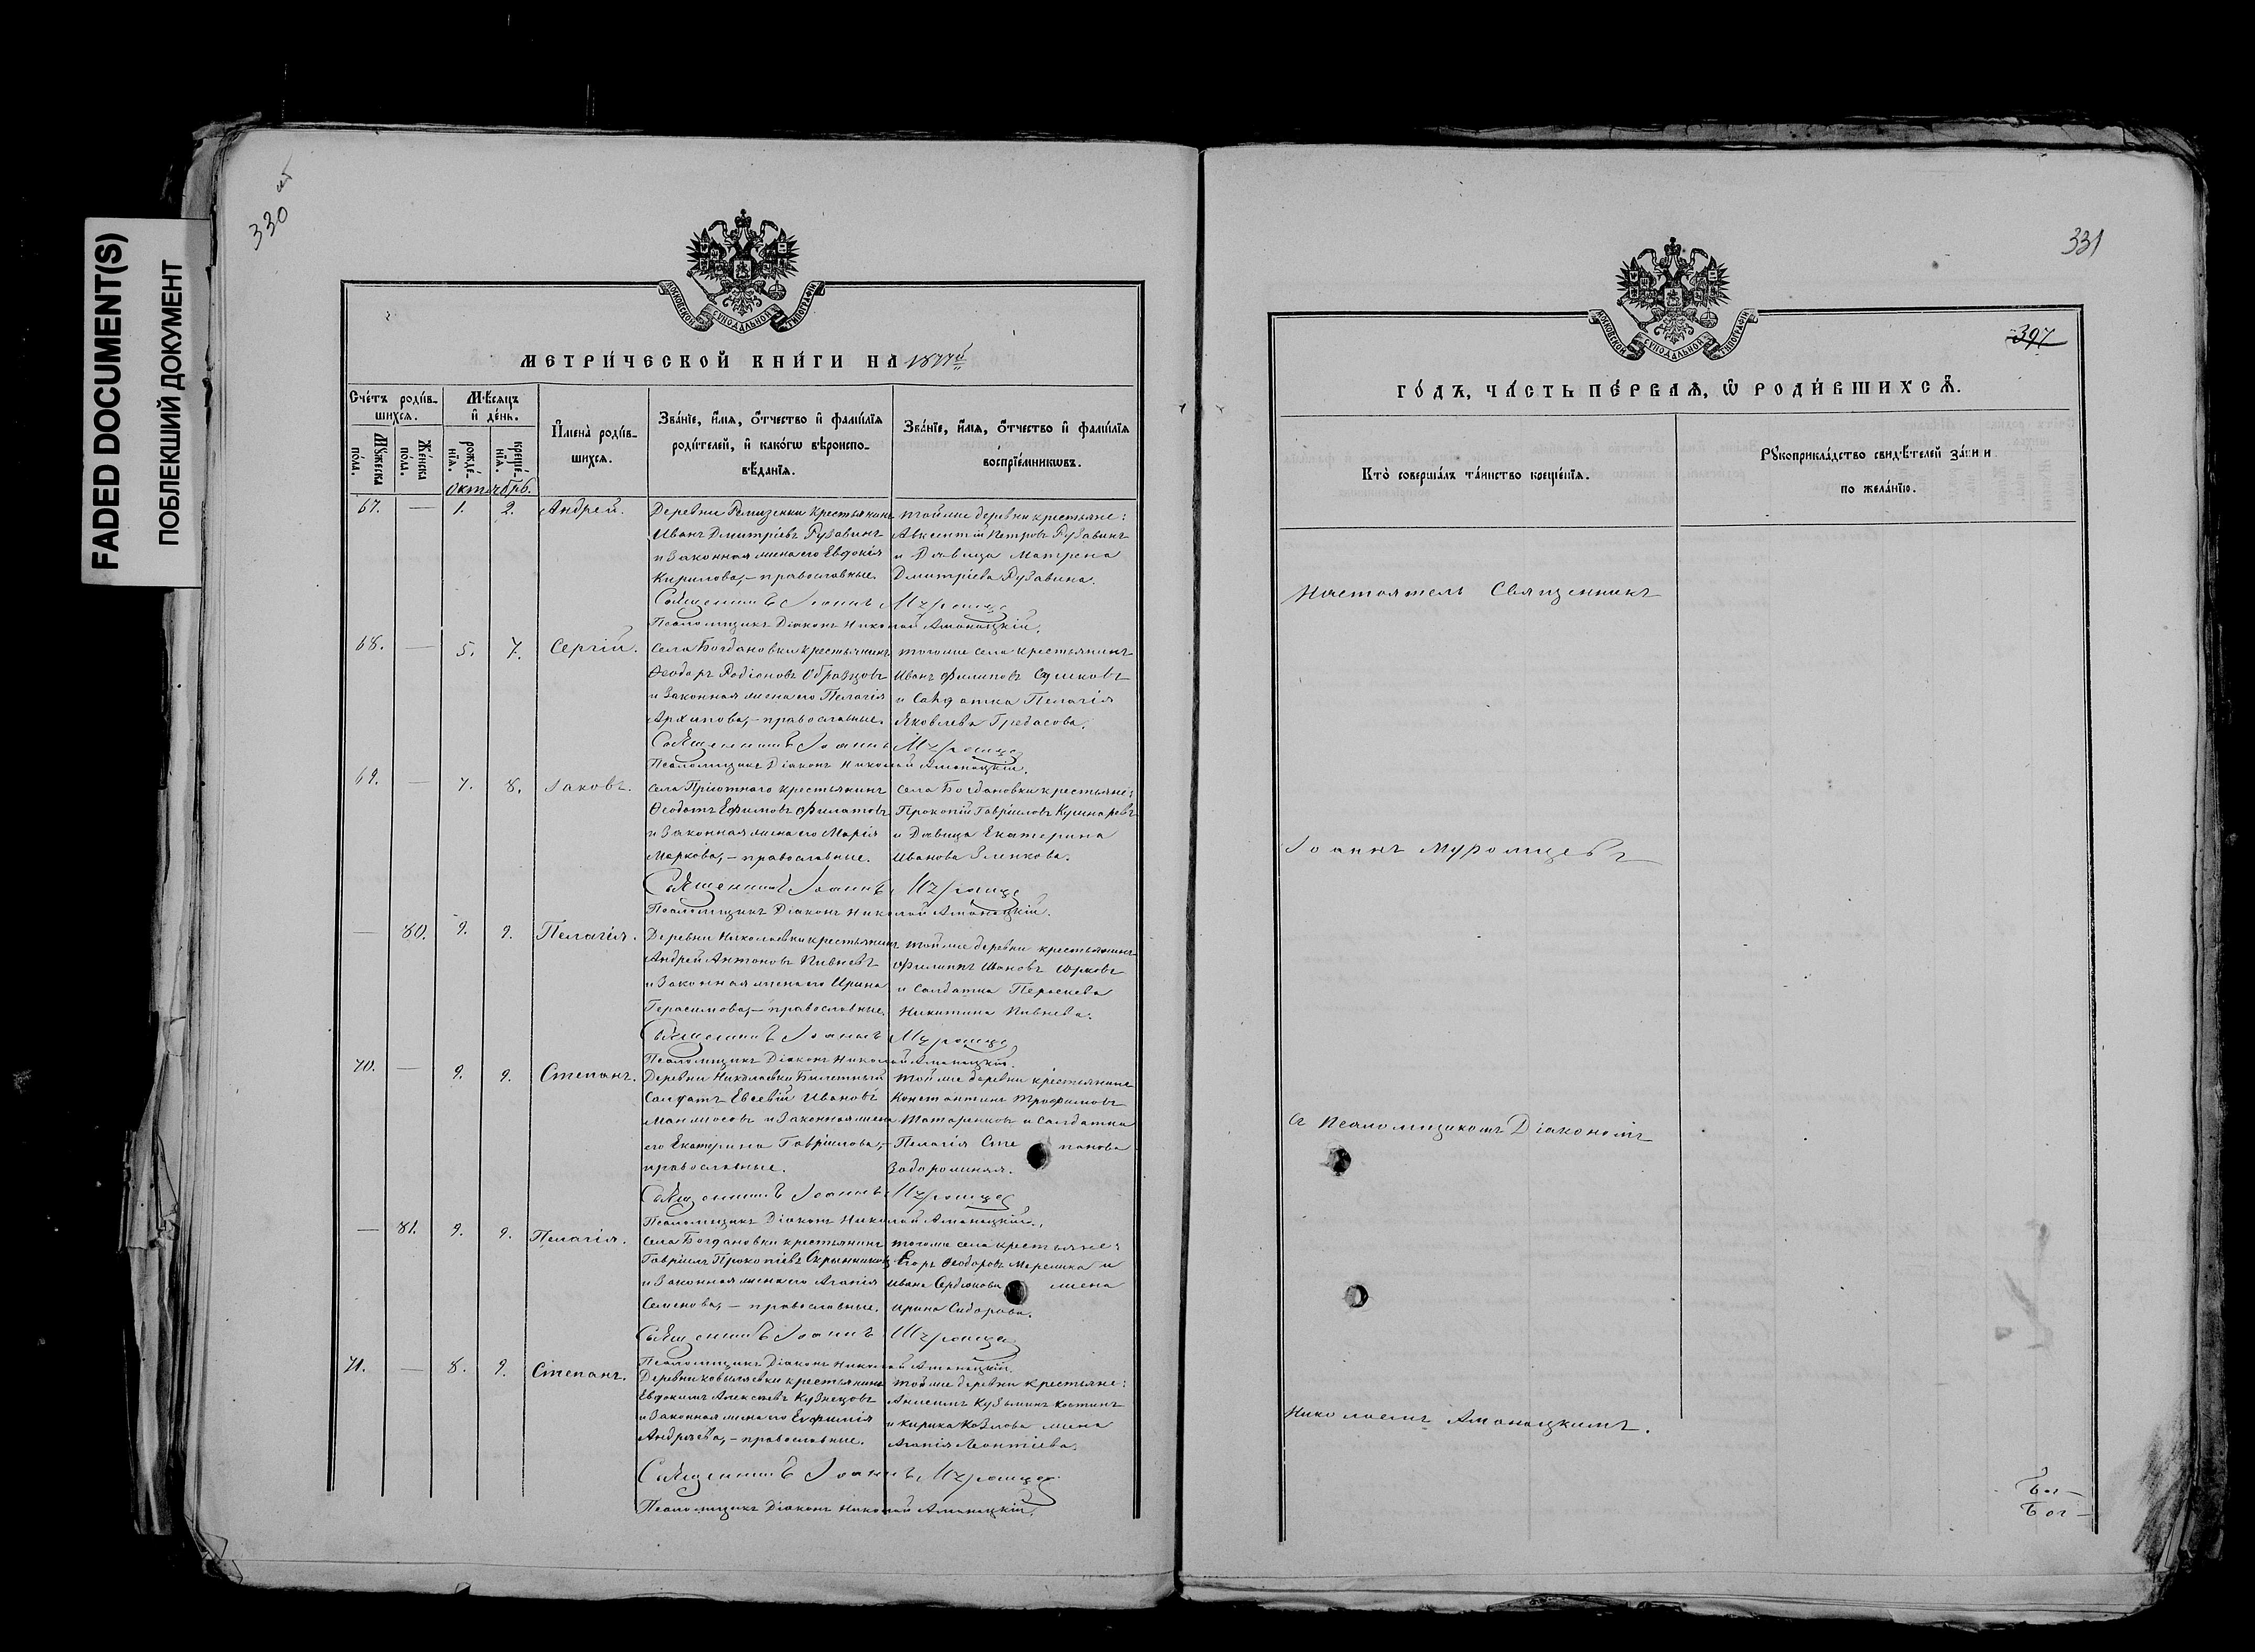 FADED DOCUMENT(S)
ПОБЛЕКШИЙ ДОКУМЕНТ
330 об
МОСКОВСКОЙ СѴНОДАЛЬНОЙ ТИПОГРАФІИ
МЕТРИ́ЧЕСКОЙ КНИ́ГИ НА 1877й
Сче́тъ роди́в-
шихся.
Мѣсяцъ
и҆ де́нь.
Мꙋжеска
по́ла.
Же́нска
по́ла.
рожде́-
нїѧ.
креще́-
нїѧ.
И҆мена̀ роди́в-
шихся.
Зва́нїе, и҆́мѧ, ѻ҆́тчество и҆ фами́лїѧ
роди́телей, и҆ како́гѡ вѣроиспо-
вѣ́данїѧ.
Зва́нїе, и҆́мѧ, ѻ҆́тчество и҆ фами́лїѧ
воспрїе́мникѡвъ.
Октябрь.
67. — 1. 2. Андрей.
Деревни Ремизенки крестьянинъ
Иванъ Дмитріевъ Рузавинъ
и законная жена его Евдокія
Кирилова, – православные.
тойже деревни крестьяне:
Авксентій Петровъ Рузавинъ
и Дѣвица Матрена
Дмитріева Рузавина.
Священникъ Іоаннъ Муромце
Псаломщикъ Діаконъ Николай Амоницкій.
68. — 5. 7. Сергій.
Села Богдановки крестьянинъ
Ѳеодоръ Родіоновъ Образцовъ
и законная жена его Пелагія
Архипова, – православные.
тогоже села крестьянинъ
Иванъ Филиповъ Сушковъ
и Солдатка Пелагія
Яковлева Гребасова.
Священникъ Іоаннъ Муромце
Псаломщикъ Діаконъ Николай Амоницкій.
69. — 7. 8. Іаковъ.
Села Пріютнаго крестьянинъ
Ѳеодотъ Ефимовъ Филатовъ
и законная жена его Марія
Маркова, – православные.
Села Богдановки крестьяне:
Прокопій Гавріиловъ Кушнаревъ
и Дѣвица Екатерина
Иванова Зленкова.
Священникъ Іоаннъ Муромце
Псаломщикъ Діаконъ Николай Амоницкій.
— 80. 9. 9. Пелагія.
Деревни Николаевки крестьянинъ
Андрей Антоновъ Пивневъ
и законная жена его Ирина
Герасимова, – православные.
тойже деревни крестьянинъ
Филиппъ Ивановъ Юрковъ
и Солдатка Параскева
Никитина Пивнева.
Священникъ Іоаннъ Муромце
Псаломщикъ Діаконъ Николай Амоницкій.
70. — 9. 9. Степанъ.
Деревни Николаевки Билетный
Солдатъ Евсевій Ивановъ
Манжосовъ и законная жена
его Екатерина Гавріилова, –
православные.
тойже деревни крестьянинъ
Константинъ Трофимовъ
Татаренковъ и Солдатка
Пелагія Степанова
Задорожняя.
Священникъ Іоаннъ Муромце
Псаломщикъ Діаконъ Николай Амоницкій.
— 81. 9. 9. Пелагія.
Села Богдановки крестьянинъ
Гавріилъ Прокопіевъ Скрынниковъ
и законная жена его Агапія
Семенова, – православные.
тогоже села крестьяне:
Егоръ Ѳеодоровъ Мережка и
Ивана Сердюкова жена
Ирина Сидорова.
Священникъ Іоаннъ Муромце
Псаломщикъ Діаконъ Николай Амоницкій.
71. — 8. 9. Степанъ.
Деревни Ковыляевки крестьянинъ
Евдокимъ Алексѣевъ Кузнецовъ
и законная жена его Евфимія
Андреева, – православные.
тойже деревни крестьяне:
Анисимъ Кузьминъ Костинъ
и Кирика Козлова жена
Агапія Леонтіева.
Священникъ Іоаннъ Муромце
Псаломщикъ Діаконъ Николай Амоницкій.
331
397
МОСКОВСКОЙ СѴНОДАЛЬНОЙ ТИПОГРАФІИ
ГО́ДЪ, ЧА́СТЬ ПЕ́РВАѦ, Ѡ҆ РОДИ́ВШИХСѦ.
Кто̀ соверша́лъ та́инство креще́нїѧ.
Рꙋкоприкла́дство свидѣ́телей за́писи
по жела́нїю.
Настоятель Священникъ
Іоаннъ Муромцевъ
съ Псаломщикомъ Діакономъ
Николаемъ Амоницкимъ.
Бог –
Бог –